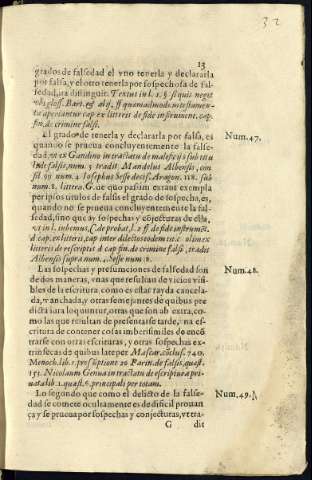 32
13
grados de falsedad el vno tenerla y declararla
por falsa, y el otro tenerla por sospechosa de fal-
sedad, ita distinguit. Textus in l. 1. § si quis neget
vbi gloss. Bart. & alij. ff quemadmodum testamen-
ta aperiantur cap ex litteris de fide instrument. cap.
fin. de crimine falsi.
El grado de tenerla y declararla por falsa, es
Num. 47.
quando se prueua concluyentemente la false-
dad, vt ex Gandino in tractatu de maleficijs sub titu
lo de falsis, num. 5 tradit. Mandolus Albensis, con
sil 99 num. 4 Iosephus Sesse decis. Aragon. 118. sub
num. 8. littera G.
peripicitrulos de falsi el grado de sospecha, es,
quando no se prueua concluyentemente la fal-
sedad, sino que ay sospechas y conjecturas de ella,
vt in l. vbi nemus, C. de probat. l. 2 ff. de fide instrumēt.
d cap. ex litteris, cap inter dilectos eodem tit. c olim ex
litteris de rescriptis d cap fin. de crimine falsi, tradit
Albensis supra num. 4. Sesse num 8.
Las sospechas y presumciones de falsedad son
Num. 48.
de dos maneras, vnas que resultan de vicios visi-
bles de la escritura como es estar rayda cancela-
da, y anchada, y otras semejantes de quibus pre
dicta iura loquuntur, otras que son ab extra, co-
mo las que resultan de presentarse tarde, na es-
critura de contener cosas imberisimiles de encō
trarse con otras escrituras, y otras sospechas ex-
trinsecas de quibus late per Mascar. cōclus. 740.
Menoch. lib. 5. præsumptione 20 Farin. de falsis, quæst.
153. Nicolaum Genua in tractatu de escriptura pri-
uata lib 2. quæst. 6. principali per totam.
Lo segundo que como el delicto de la false-
Num. 49.
dad se comete ocultamente es de dificil prouan
ça y se prueua por sospechas y conjecturas, vt tra-
G dit